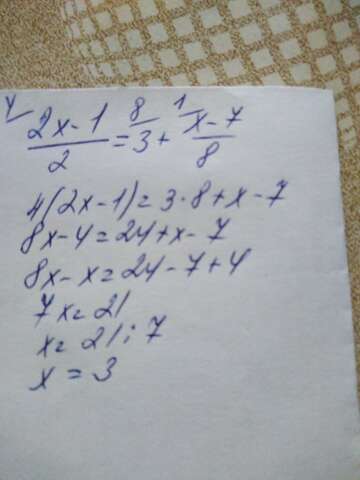 4/ 8/ 1/
(2x-1)/2 = 3 + (x-7)/8
4(2x-1)=3·8+x-7
8x-4=24+x-7
8x-x=24-7+4
7x=21
x=21:7
x=3